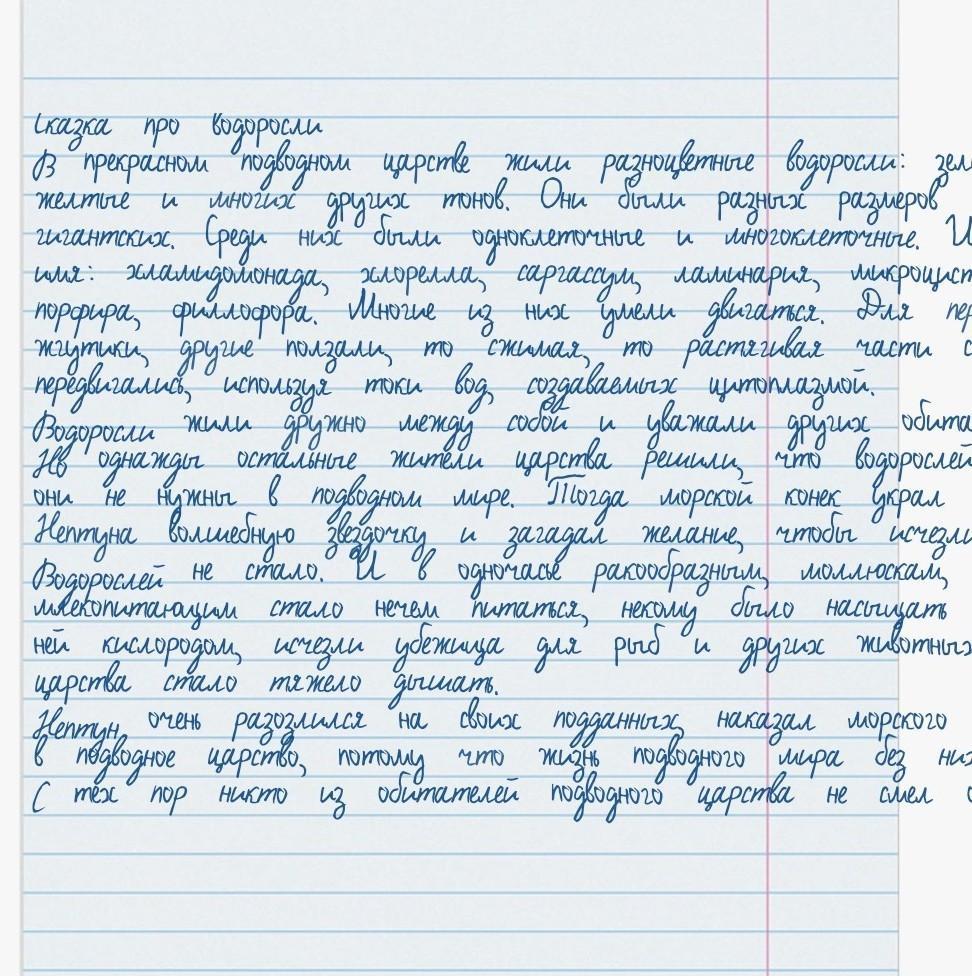 Сказка про водоросли
В прекрасном подводном царстве жили разноцветные водоросли:
желтые и многих других тонов. Они были разных размеров
гигантских. Среди них были одноклеточные и многоклеточные. И
имя: хламидомонада, хлорелла, саргассум, ламинария,
порфира, филлофора. Многие из них умели двигаться. Для
жгутики, другие ползали, то сжимая, то растягивая части
передвигались, используя токи вод, создаваемых цитоплазмой.
Водоросли жили дружно между собой и уважали других
Но однажды остальные жители царства решили, что водорослей
они не нужны в подводном мире. Тогда морской конек украл
Нептуна волшебную звездочку и загадал желание, чтобы исчезли
Водорослей не стало. И в одночасье ракообразным, моллюскам,
млекопитающим стало нечем питаться, некому было насыщать
ней кислородом, исчезли убежища для рыб и других животных
царства стало тяжело дышать.
Нептун очень разозлился на своих подданных, наказал морского
в подводное царство, потому что жизнь подводного мира без них
С тех пор никто из обитателей подводного царства не смел